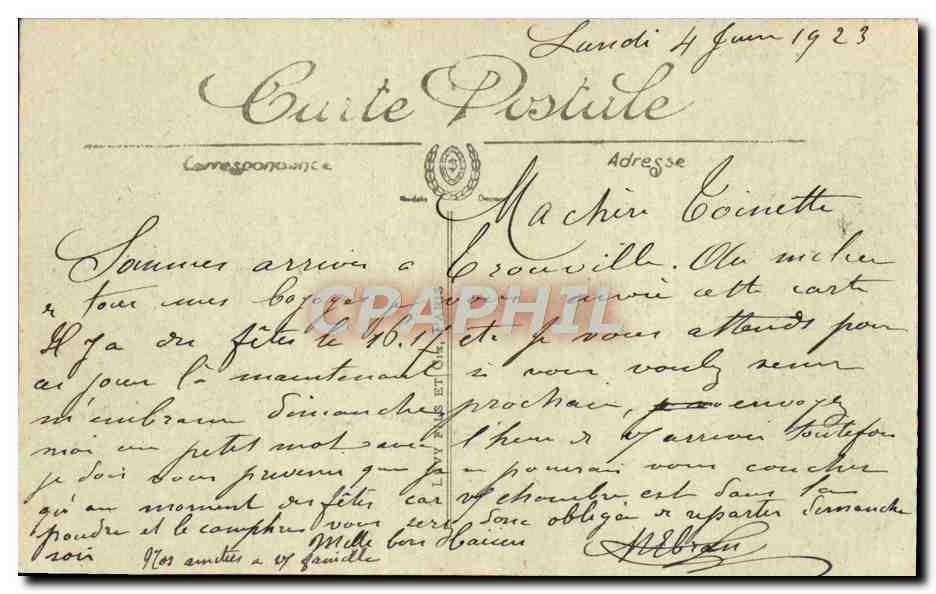 Lundi 4 Juin 1923
Carte Postale
Correspondance
Adresse
Ma chère Toinette
Sommes arrivés à Trouville. Au milieu
de tous mes bagages je vous envoie cette carte
Il y a des fêtes le 16. 17 etc je vous attends pour
ces jours là maintenant si vous voulez venir
m'embrasser dimanche prochain, envoyez
moi un petit mot avec l'heure de v/ arrivée toutefois
je dois vous prévenir que je ne pourrai vous coucher
qu'au moment des fêtes car v/ chambre est dans la
poudre et le camphre vous serez donc obligée de repartir dimanche
soir
Mille bons baisers
Nos amitiés à v/ famille
LEVY FILS ET CIE, PARIS
CPAPHIL